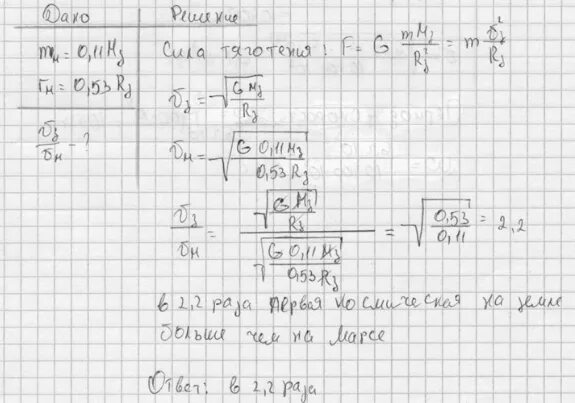 Дано Решение
m_м = 0,11 M_з
r_м = 0,53 R_з
v_з/v_м - ?
Сила тяготения: F = G mM_з/R_з² = m v_з²/R_з
v_з = √(G M_з/R_з)
v_м = √(G 0,11 M_з/0,53 R_з)
v_з/v_м = √(G M_з/R_з)/√(G 0,11 M_з/0,53 R_з) = √(0,53/0,11) = 2,2
в 2,2 раза первая космическая на земле
больше чем на марсе
Ответ: в 2,2 раза